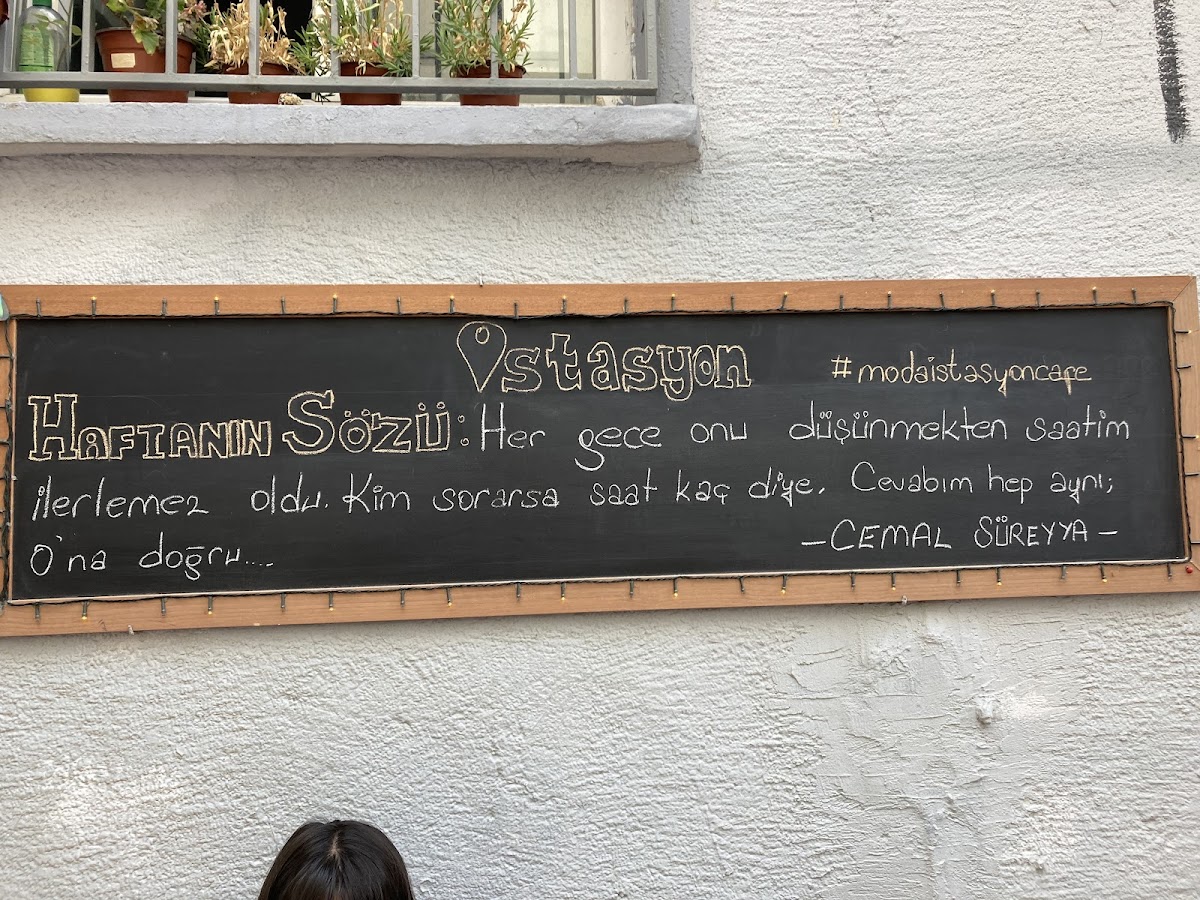 istasyon
#modaistasyoncafe
HAFTANIN SÖZÜ: Her gece onu düşünmekten saatim
ilerlemez oldu. Kim sorarsa saat kaç diye. Cevabım hep aynı;
O'na doğru....
–CEMAL SÜREYYA–